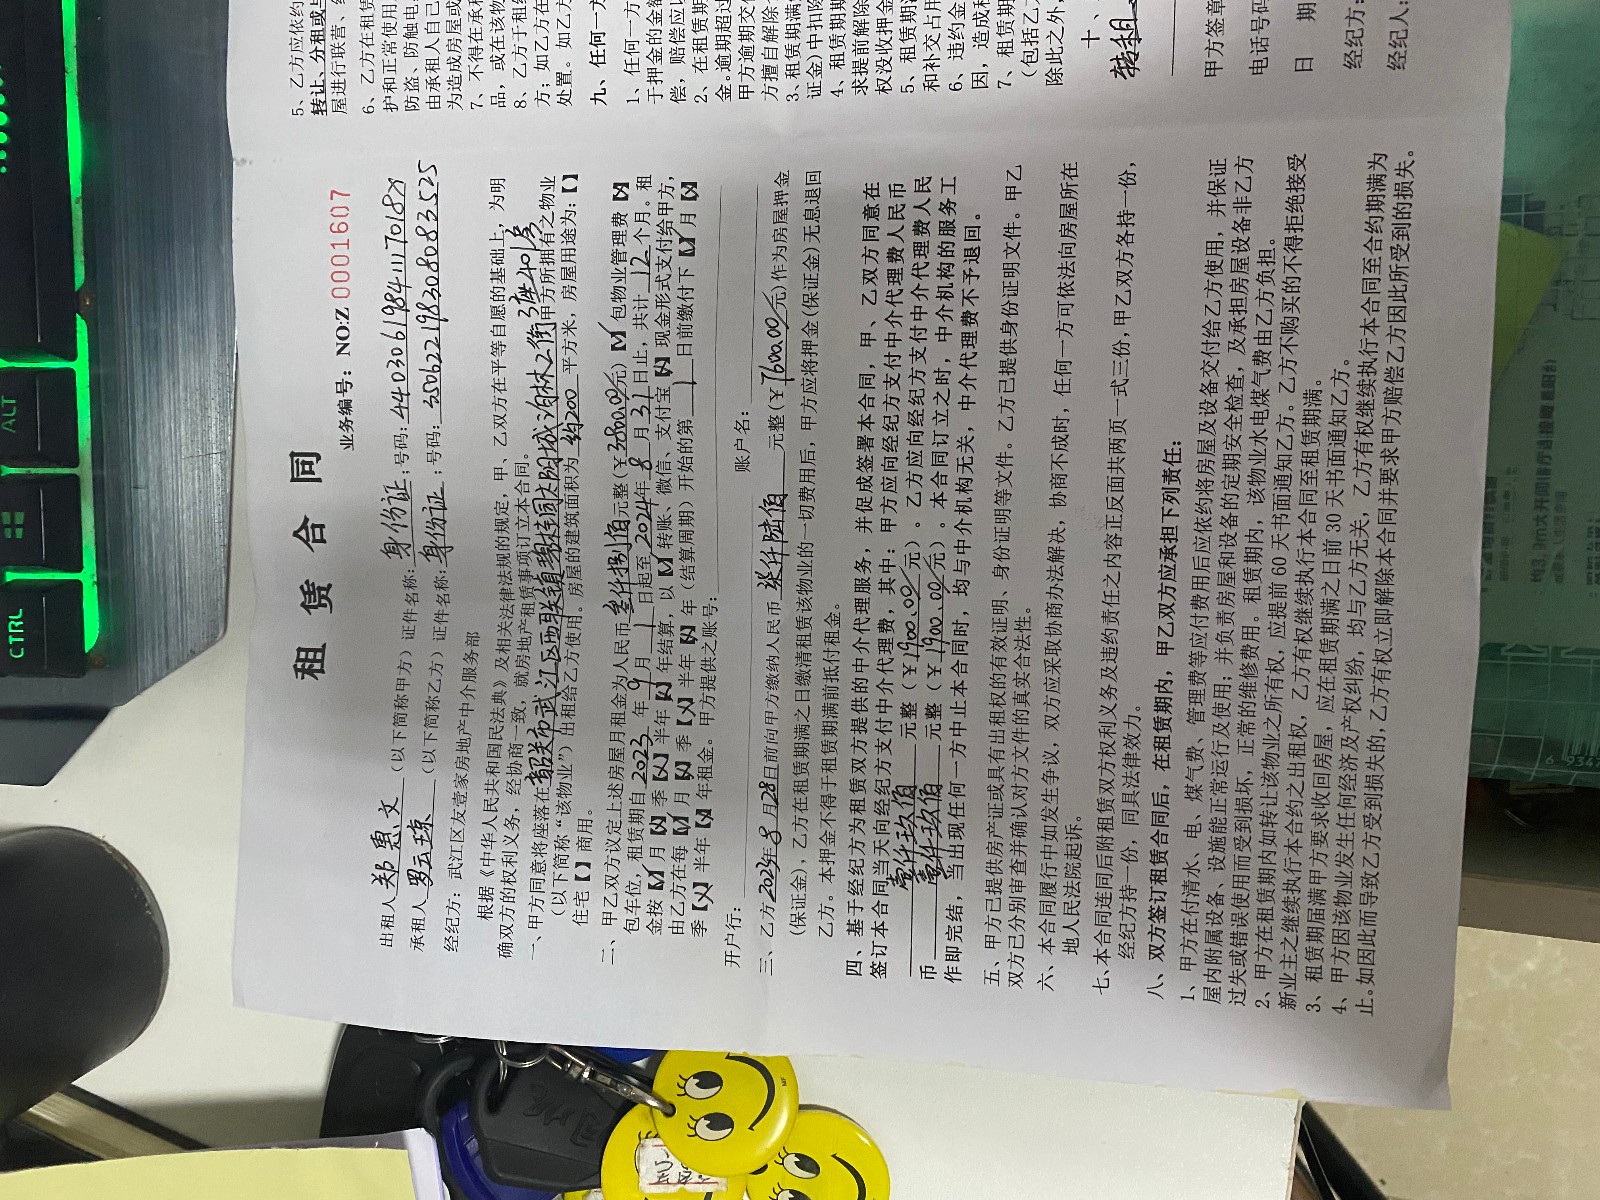 租赁合同
业务编号：NO:Z 0001607
出租人郑惠文（以下简称甲方）证件名称：身份证；号码：44030619841117018X
承租人罗云琼（以下简称乙方）证件名称：身份证；号码：350622198308083525
经纪方：武江区友壹家房地产中介服务部
根据《中华人民共和国民法典》及相关法律法规的规定，甲、乙双方在平等自愿的基础上，为明
确双方的权利义务，经协商一致，就房地产租赁事项订立本合同。
一、甲方同意将座落在韶关市武江区西联镇 阳城泊林上街3座401房甲方所拥有之物业
（以下简称“该物业”）出租给乙方使用。房屋的建筑面积为约200平方米，房屋用途为：【】
住宅【】商用。
二、甲乙双方议定上述房屋月租金为人民币叁仟捌佰元整(￥3800.00元)【✓】包物业管理费【X】
包年位，租赁期自2023年9月1日起至2024年8月31日止，共计12个月。租
金按【✓】月【X】季【X】半年【X】年结算，以【✓】转账、微信、支付宝【X】现金形式支付给甲方，
由乙方在每【✓】月【X】季【X】半年【X】年（结算周期）开始的第1日前缴付下【✓】月【X】
季【X】半年【X】年租金。甲方提供之账号：
开户行： 账户名：
三、乙方2023年8月28日前向甲方缴纳人民币柒仟陆佰元整(￥7600.00元)作为房屋押金
(保证金)，乙方在租赁期满之日缴清租赁该物业的一切费用后，甲方应将押金(保证金)无息退回
乙方。本押金不得于租赁期满前抵付租金。
四、基于经纪方为租赁双方提供的中介代理服务，并促成签署本合同，甲、乙双方同意在
签订本合同当天向经纪方支付中介代理费，其中：甲方应向经纪方支付中介代理费人民币
壹仟玖佰元整（￥1900.00元）。乙方应向经纪方支付中介代理费人民
币壹仟玖佰元整（￥1900.00元）。本合同订立之时，中介机构的服务工
作即完结，当出现任何一方中止本合同时，均与中介机构无关，中介代理费不予退回。
五、甲方已提供房产证或具有出租权的有效证明、身份证明等文件。乙方已提供身份证明文件。甲乙
双方已分别审查并确认对方文件的真实合法性。
六、本合同履行中如发生争议，双方应采取协商办法解决，协商不成时，任何一方可依法向房屋所在
地人民法院起诉。
七、本合同连同后附租赁双方权利义务及违约责任之内容正反面共两页一式三份，甲乙双方各持一份，
经纪方持一份，同具法律效力。
八、双方签订租赁合同后，在租赁期内，甲乙双方应承担下列责任：
1、甲方在付清水、电、煤气费、管理费等应付费用后应依约将房屋及设备交付给乙方使用，并保证
屋内附属设备、设施能正常运行及使用；并负责房屋和设备的定期安全检查，及承担房屋设备非乙方
过失或错误使用而受到损坏，正常的维修费用。租赁期内，该物业水电煤气费由乙方负担。
2、甲方在租赁期内如转让该物业之所有权，应提前60天书面通知乙方。乙方不购买的不得拒绝接受
新业主之继续执行本合约之出租权，乙方有权继续执行本合同至租赁期满。
3、租赁期届满甲方要求收回房屋，应在租赁期满之日前30天书面通知乙方。
4、甲方因该物业发生任何经济及产权纠纷，均与乙方无关，乙方有权继续执行本合同至合约期满为
止。如因此而导致乙方受到损失的，乙方有权立即解除本合同并要求甲方赔偿乙方因此所受到的损失。
5、乙方应依约
转让、分租或与
屋进行联营、
6、乙方在租赁
护和正常使用
防盗、防触电
由承租人自己
为造成房屋或
7、不得在承租
品，或在该物
8、乙方于租
方；如乙方在
处置。如乙方
九、任何一方
1、任何一方
于押金的金额
偿，赔偿应以
2、在租赁期
金。逾期超过
甲方逾期交付
方擅自解除
3、租赁期满
证金)中扣除
4、租赁期
求提前解除
权没收押金
5、租赁期
和补交占用
6、违约金
因，造成租
7、租赁期
（包括乙方
除此之外，
十、
转租。
甲方签章
电话号码
日 期
经纪方：
经纪人：
CTRL
ALT